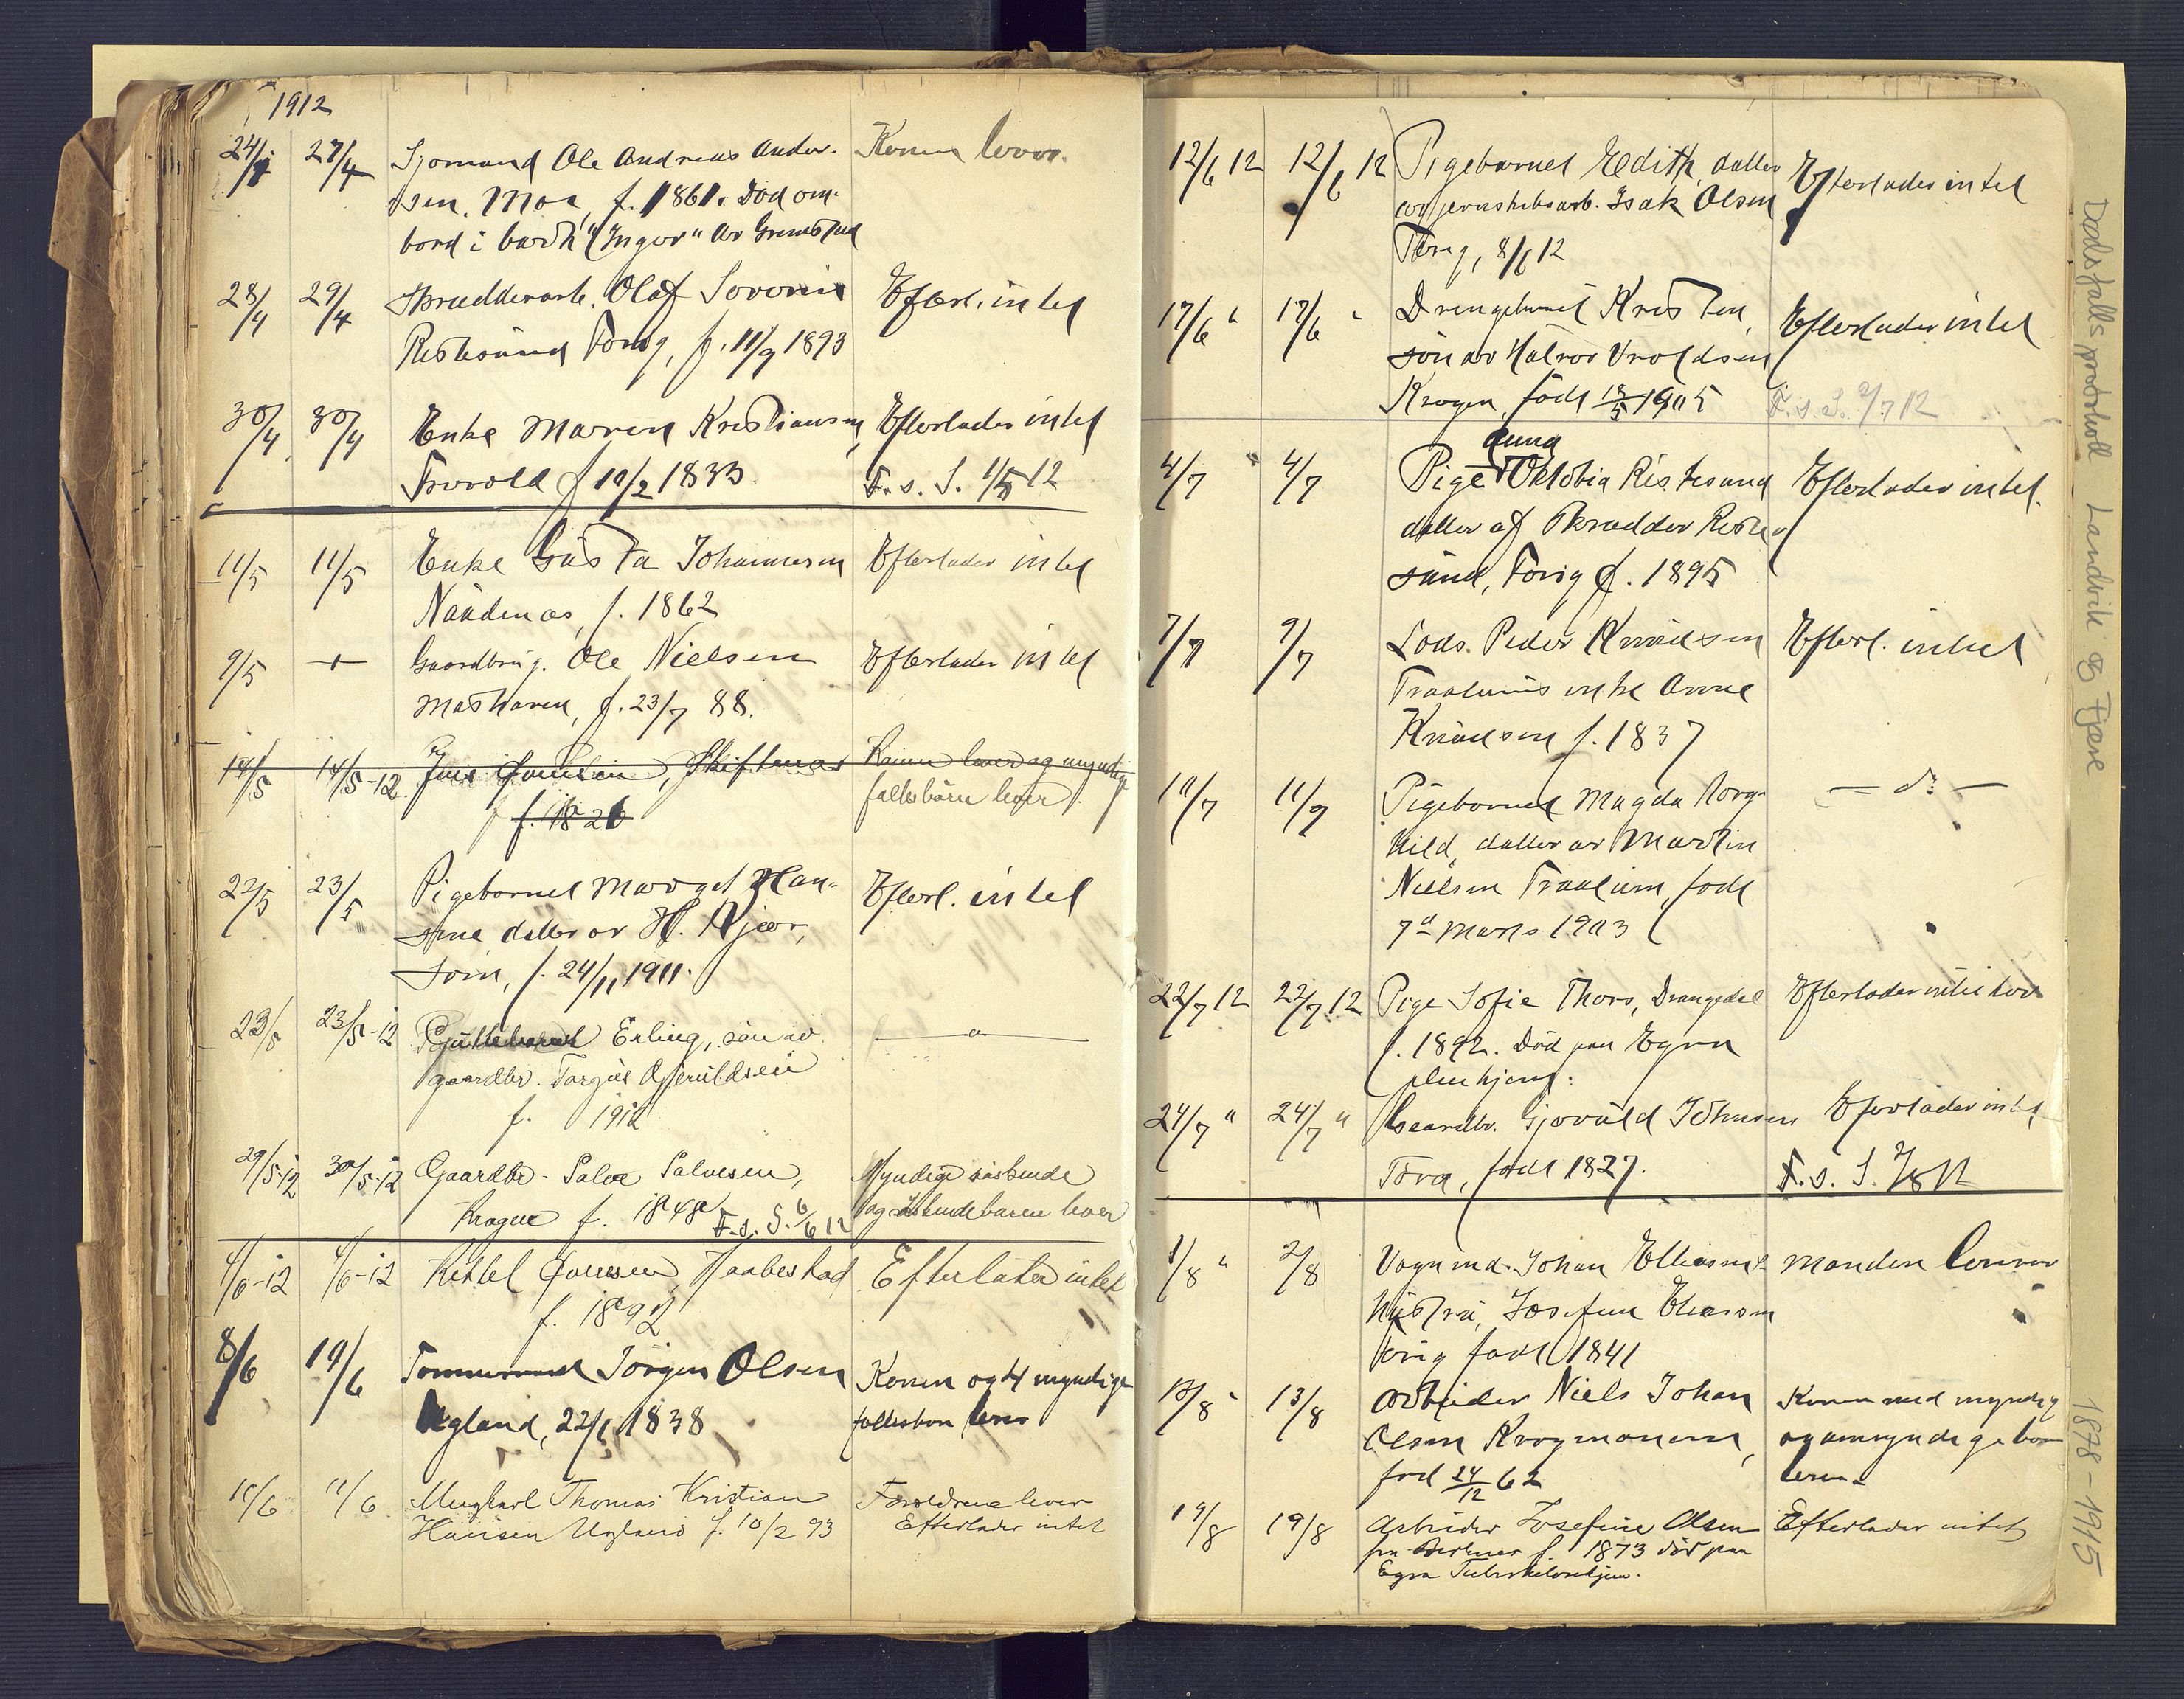 1912
24/4 27/4 Sjomand Ole Andreas Ander- Konen lever.
sen. Moa, f. 1861. Død om-
bord i bark "Inger" av Grimstad
28/4 29/4 Skrædderarb. Olaf Severin Efterl. intet
Ristesund Torig, f. 11/9 1893
30/4 30/4 Enke Maren Kristiansen, Efterlader intet
Trovold f 10/2 1833 F. s. S. 1/5 12
11/5 11/5 Enke Gusta Johannesen Efterlader intet
Naudenæs, f. 1862
9/5 Gaardbrug. Ole Nielsen Efterlader intet
f. 23/7 88.
14/5 14/5-12. Jens Jensen, Skiftenæs Konen lever og myndige
fællesbørn lever.
f. 1826
22/5 23/5 Pigebarnet Margot Han- Efterl. intet
sine datter av H. Kjær,
Søm, f. 24/11 1911.
23/5 23/5-12 Erling, søn av
gaardbr. Torgus Gjeruldsen
f. 1912
29/5-12 30/5-12 Gaardbr. Salve Salvesen, Myndige søskende
Krogen f. 1848 F. s. S. 6/6 12 og søskendebarn lever
4/6-12 4/6-12 Kittel Jensen Haabestad Efterlater intet
f. 1892
8/6 10/6 Tømmermand Jörgen Olsen Konen og 4 myndige
Ugland, 22/1 1838 fællesbørn lever
10/6 11/6 Ungkarl Thomas Kristian Forældrene lever
Hansen Ugland f. 10/2 93 Efterlader intet
12/6 12 12/6 12 Pigebarnet Edith, datter Efterlader intet
av jernskibsarb. Isak Olsen
Törig, 8/6 12
17/6 " 17/6 " Drengebarnet Kristen, Efterlader intet
søn av Halvor Vroldsen
Krogen, født 13/5 1905 F. s. S. 2/7 12
Anna
4/7 4/7 Pige Oktobia Ristesund Efterlader intet.
datter af Skrædder Riste-
sund, Torig f. 1895
7/7 9/7 Lods. Peder Knudsen Efterl. intet
Traalums enke Anne
Knudsen f. 1837
10/7 11/7 Pigebarnet Magda Borg- — do —
hild, datter av Martin
Nielsen Traalum, født
7de Marts 1903
22/7 12 22/7 12 Pige Sofie Thors, Drangedal Efterlader intet her
f. 1892. Død paa Egra
pleiehjem.
24/7 " 24/7 " Gaardbr. Gjeruld Johnsen Efterlader intet,
Tora, født 1827. F. s. S. 2/8 12
1/8 " 2/8 Vognmd. Johan Eliasens Manden lever
hustru, Josefine Eliasen
Törig født 1841
13/8 " 13/8 Arbeider Niels Johan Konen med myndig
Olsen Krogmanen, og umyndige børn
fød 24/12 62 lever.
19/8 19/8 Arbeider Josefine Olsen Efterlader intet
fra Birkenes f. 1873 død paa
Egra Tuberkelosehjem.
Dødsfallsprotokoll - Landvik og Fjære 1878-1915